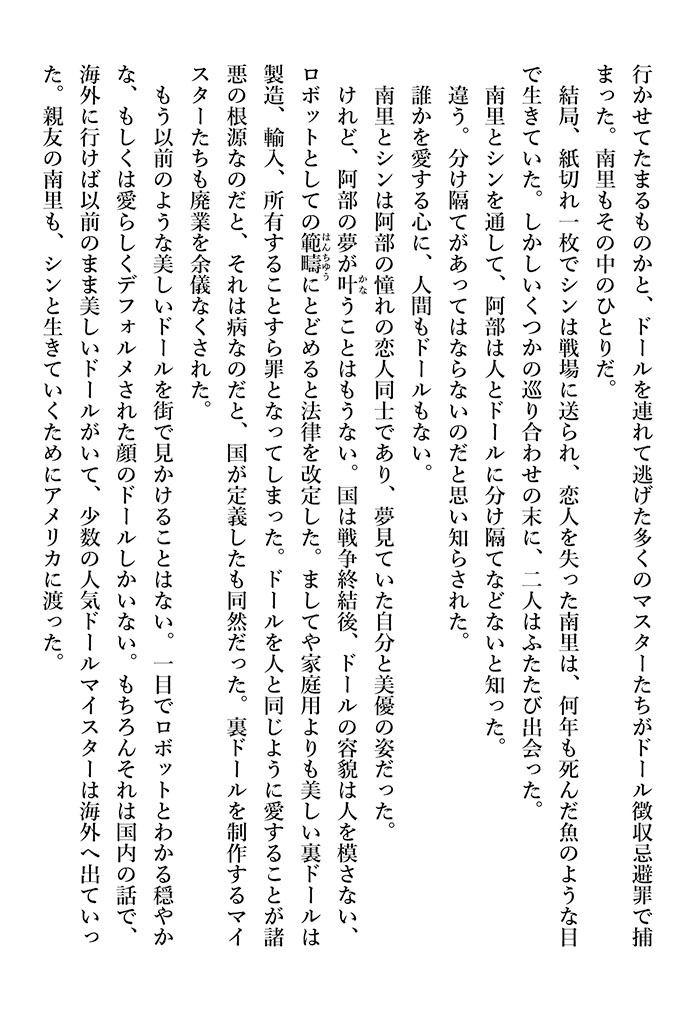 行かせてたまるものかと、ドールを連れて逃げた多くのマスターたちがドール徴収忌避罪で捕
まった。南里もその中のひとりだ。
結局、紙切れ一枚でシンは戦場に送られ、恋人を失った南里は、何年も死んだ魚のような目
で生きていた。しかしいくつかの巡り合わせの末に、二人はふたたび出会った。
南里とシンを通して、阿部は人とドールに分け隔てなどないと知った。
違う。分け隔てがあってはならないのだと思い知らされた。
誰かを愛する心に、人間もドールもない。
南里とシンは阿部の憧れの恋人同士であり、夢見ていた自分と美優の姿だった。
けれど、阿部の夢が叶うことはもうない。国は戦争終結後、ドールの容貌は人を模さない、
かな
ロボットとしての範疇にとどめると法律を改定した。ましてや家庭用よりも美しい裏ドールは
はんちゅう
製造、輸入、所有することすら罪となってしまった。ドールを人と同じように愛することが諸
悪の根源なのだと、それは病なのだと、国が定義したも同然だった。裏ドールを制作するマイ
スターたちも廃業を余儀なくされた。
もう以前のような美しいドールを街で見かけることはない。一目でロボットとわかる穏やか
な、もしくは愛らしくデフォルメされた顔のドールしかいない。もちろんそれは国内の話で、
海外に行けば以前のまま美しいドールがいて、少数の人気ドールマイスターは海外へ出ていっ
た。親友の南里も、シンと生きていくためにアメリカに渡った。